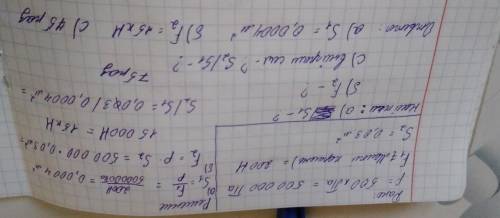 Дано:
p = 500 кПа = 500 000 Па
F₁ (малого поршня) = 200 Н
S₂ = 0,03 м²
Найти: а) S₁ - ?
б) F₂ - ?
с) выигрыш силы - ? S₂/S₁ - ?
Решение
а) S₁ = F₁/p = 200Н/500000Па = 0,0004 м²
б) F₂ = p · S₂ = 500 000 · 0,03 м² =
15 000Н = 15кН
S₂/S₁ = 0,03 / 0,0004 м² =
75 раз
Ответ: а) S₁ = 0,0004 м² б) F₂ = 15кН с) 75 раз